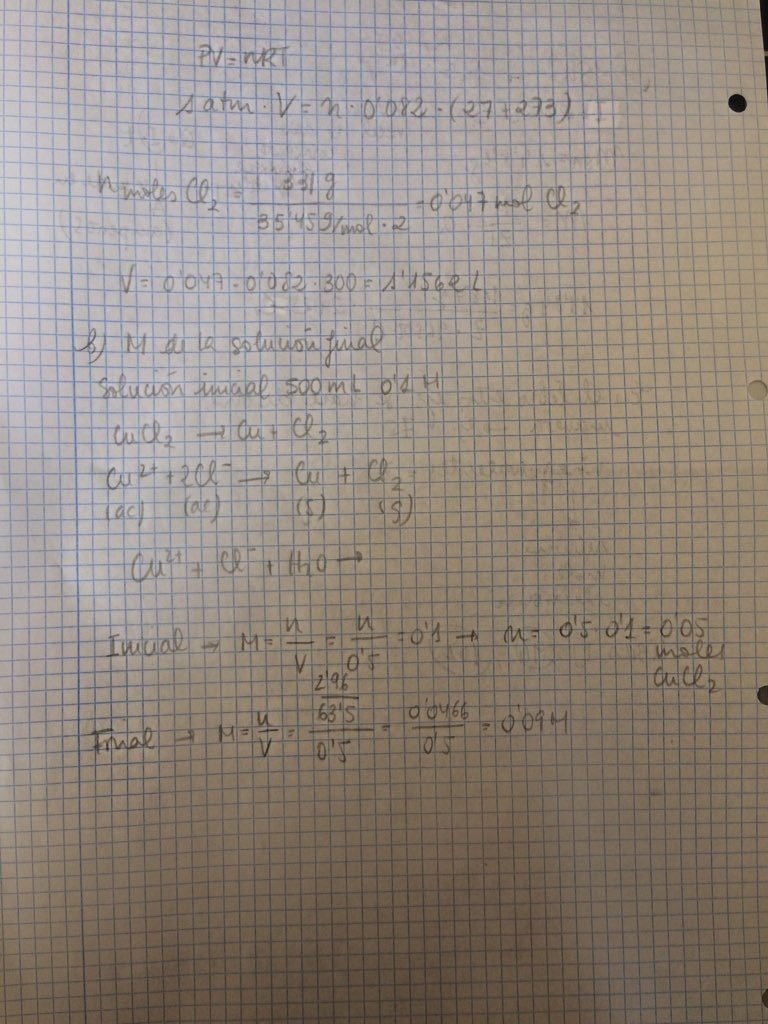 PV = nRT
1 atm · V = n · 0'082 · (27+273)
n moles Cl2 = 3'31 g / 35'45 g/mol · 2 = 0'047 mol Cl2
V = 0'047 · 0'082 · 300 = 1'1562 L
b) M de la solución final
Solución inicial 500 mL 0'1 M
CuCl2 → Cu + Cl2
Cu2+ + 2Cl- → Cu + Cl2
(ac) (ac) (s) (g)
Cu2+ + Cl- + H2O →
Inicial → M = n/V = n/0'5 = 0'1 → n = 0'5 · 0'1 = 0'05
moles
CuCl2
Final → M = n/V = (2'96/63'5)/0'5 = 0'0466/0'5 = 0'09 M